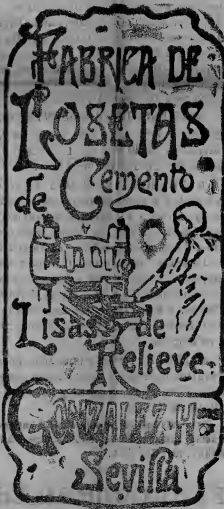 FABRICA DE
LOSETAS
de Cemento
Lisas y de
Relieve.
GONZALEZ Hnos
Sevilla